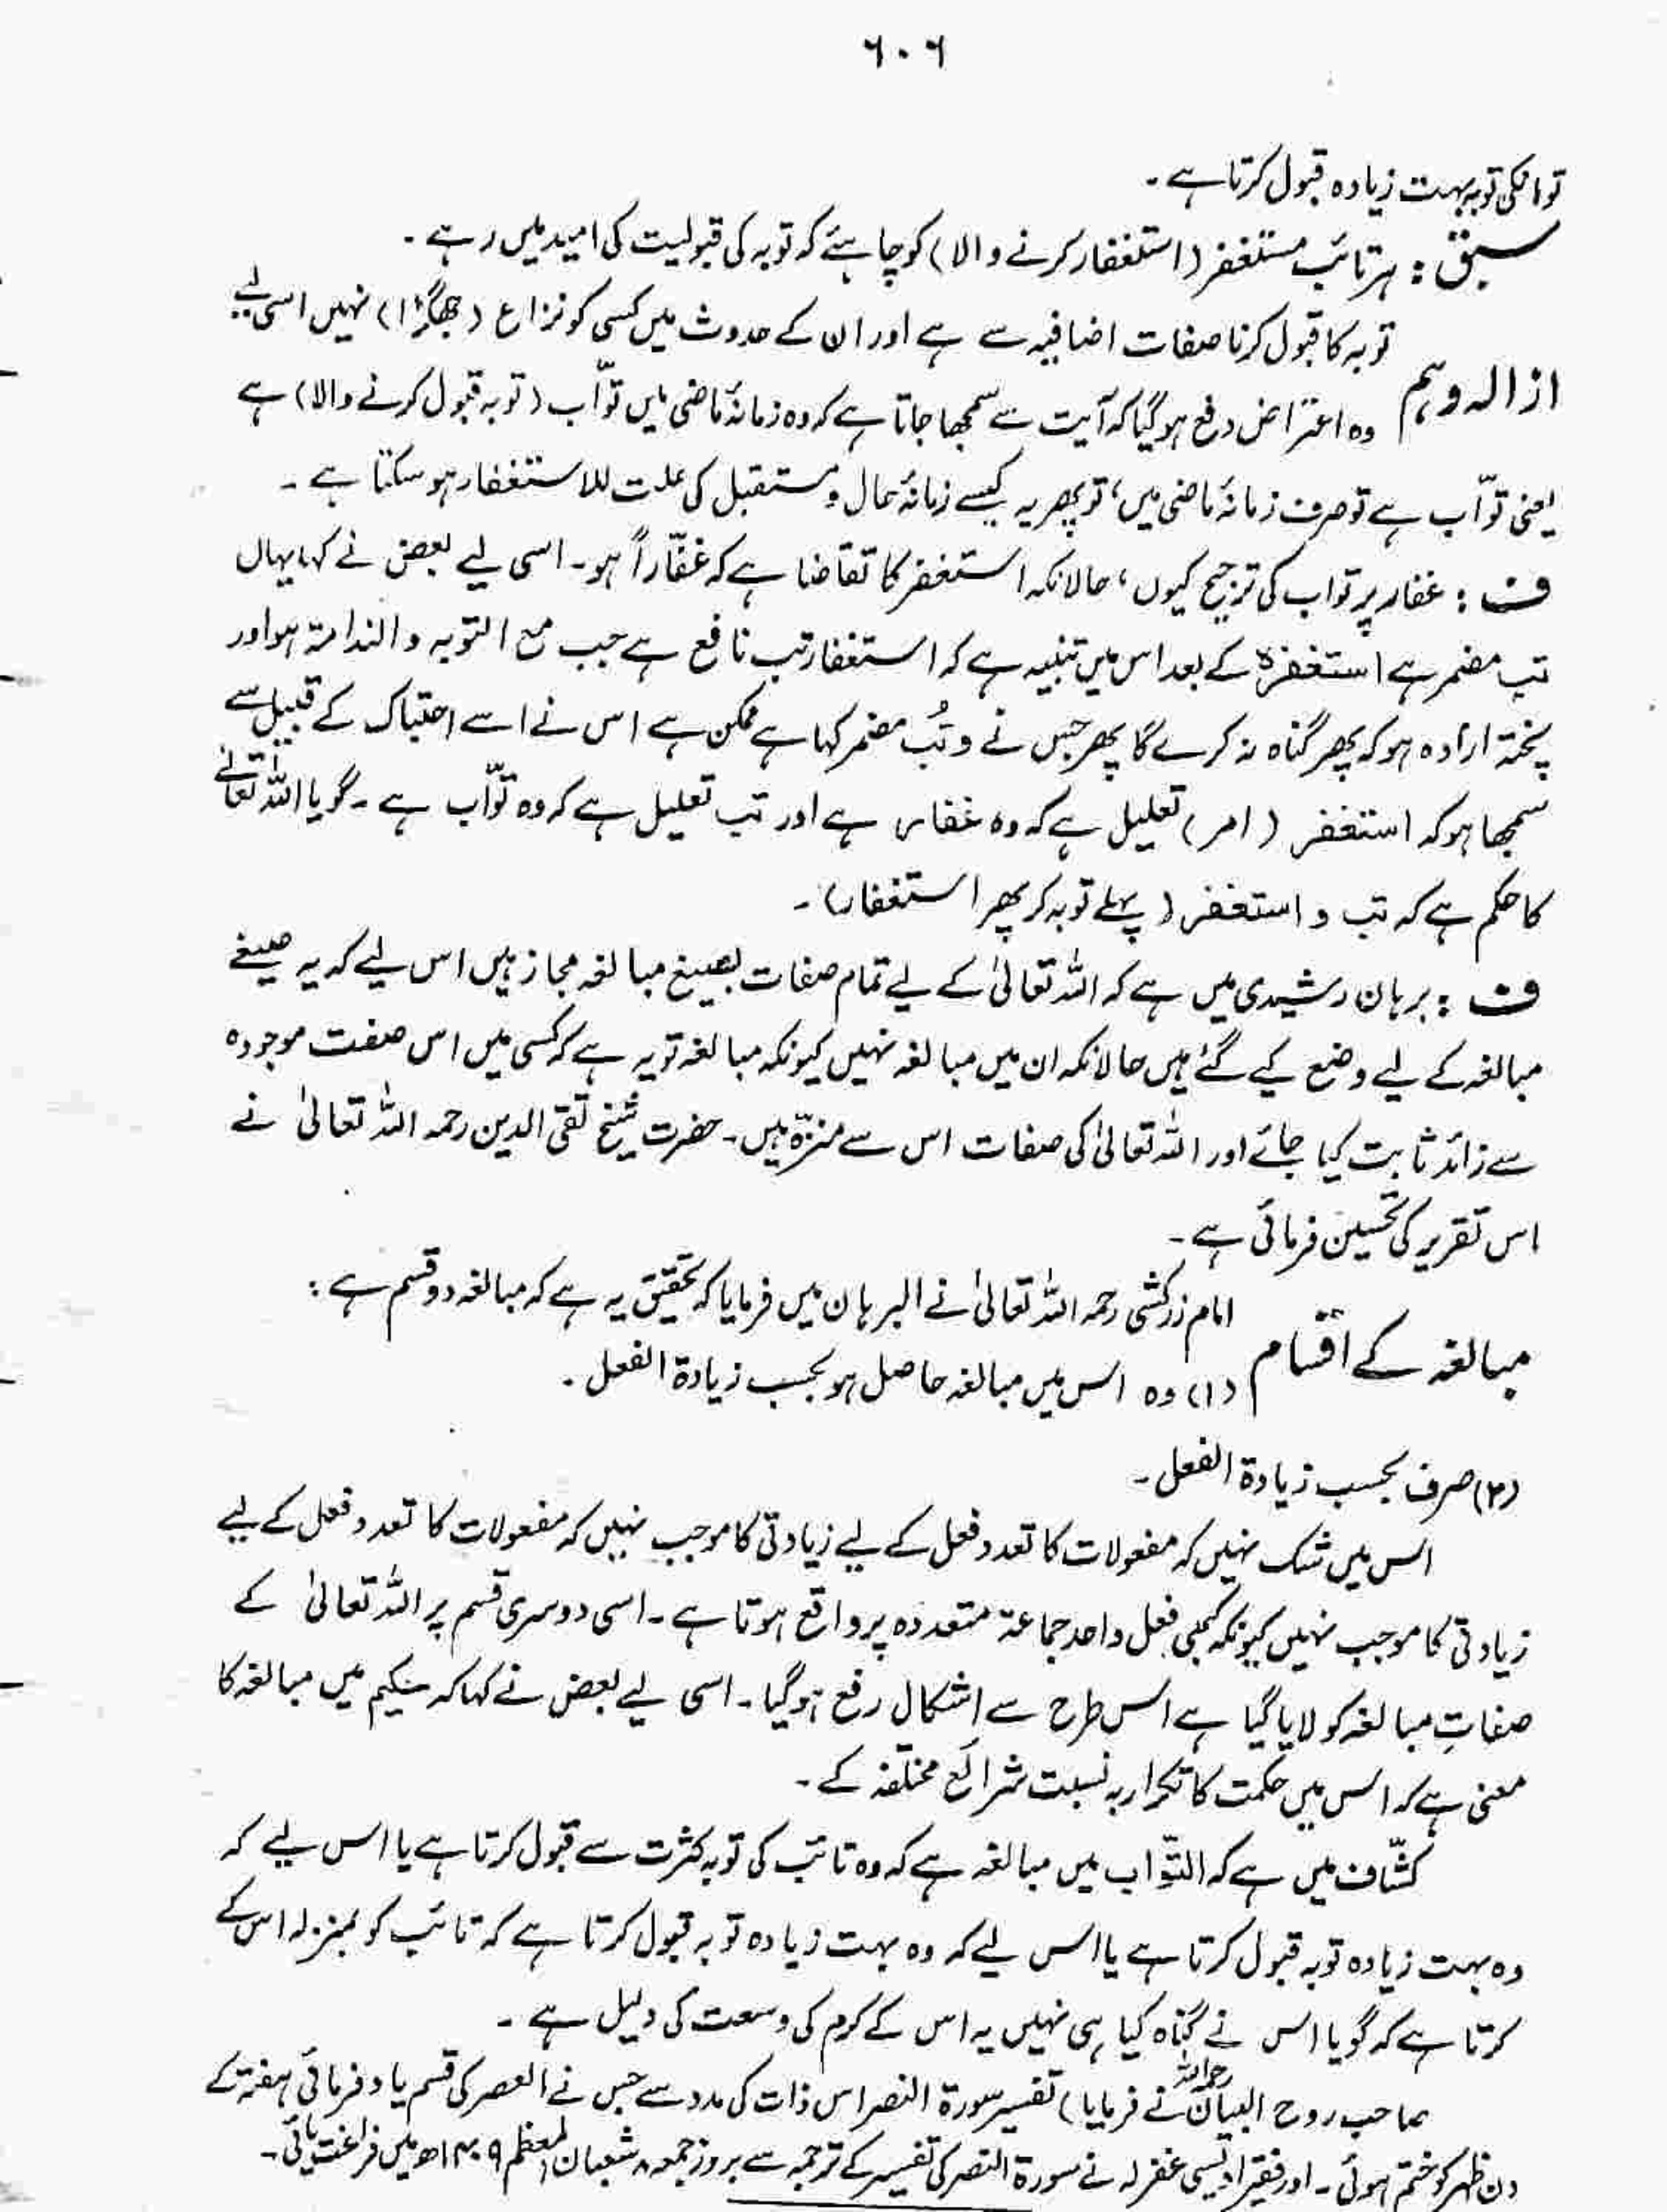 ۶۰۶
تو انکی توبہ بہت زیادہ قبول کرتا ہے۔
سبق : ہر تائب مستغفر (استغفار کرنے والا) کو چاہئے کہ توبہ کی قبولیت کی امید میں رہے ۔
توبہ کا قبول کرنا صفات اضافیہ سے ہے اور ان کے حدوث میں کسی کو نزاع (جھگڑا) نہیں اسی لیے
ازالہ وہم
وہ اعتراض دفع ہوگیا کہ آیت سے سمجھا جاتا ہے کہ وہ زمانۂ ماضی میں توّاب (توبہ قبول کرنے والا) ہے
یعنی توّاب ہے تو صرف زمانۂ ماضی میں، تو پھر یہ کیسے زمانۂ حال و مستقبل کی علت للاستغفار ہو سکتا ہے ۔
ف : غفار پر تواب کی ترجیح کیوں، حالانکہ استغفر کا تقاضا ہے کہ غفّاراً ہو۔ اسی لیے بعض نے کہا یہاں
تب مضمر ہے استغفرہ کے بعد اس میں تنبیہ ہے کہ استغفار تب نافع ہے جب مع التوبہ والندامۃ ہو اور
پختہ ارادہ ہو کہ پھر گناہ نہ کرے گا پھر جس نے و تُب مضمر کہا ہے ممکن ہے اس نے اسے احتباک کے قبیل سے
سمجھا ہو کہ استغفر (امر) تعلیل ہے کہ وہ غفار ہے اور تب تعلیل ہے کہ وہ توّاب ہے ۔ گویا اللہ تعالیٰ
کا حکم ہے کہ تب و استغفر (پہلے توبہ کر پھر استغفار) ۔
ف : برہان رشیدی میں ہے کہ اللہ تعالیٰ کے لیے تمام صفات بصیغ مبالغہ مجاز ہیں اس لیے کہ یہ صیغے
مبالغہ کے لیے وضع کیے گئے ہیں حالانکہ ان میں مبالغہ نہیں کیونکہ مبالغہ تو یہ ہے کہ کسی میں اس صفت موجودہ
سے زائد ثابت کیا جائے اور اللہ تعالیٰ کی صفات اس سے منزّہ ہیں۔ حضرت شیخ تقی الدین رحمہ اللہ تعالیٰ نے
اس تقریر کی تحسین فرمائی ہے ۔
امام زرکشی رحمہ اللہ تعالیٰ نے البرہان میں فرمایا کہ تحقیق یہ ہے کہ مبالغہ دو قسم ہے :
مبالغہ کے اقسام
(۱) وہ اس میں مبالغہ حاصل ہو بحسب زیادۃ الفعل ۔
(۲) صرف بحسب زیادۃ الفعل ۔
اس میں شک نہیں کہ مفعولات کا تعدد فعل کے لیے زیادتی کا موجب نہیں کہ مفعولات کا تعدد فعل کے لیے
زیادتی کا موجب نہیں کیونکہ کبھی فعل واحد جماعۃ متعددہ پر واقع ہوتا ہے ۔ اسی دوسری قسم پر اللہ تعالیٰ کے
صفاتِ مبالغہ کو لایا گیا ہے اس طرح سے اشکال رفع ہوگیا ۔ اسی لیے بعض نے کہا کہ حکیم میں مبالغہ کا
معنی ہے کہ اس میں حکمت کا تکرار بہ نسبت شرائع مختلفہ کے ۔
کشّاف میں ہے کہ التوّاب میں مبالغہ ہے کہ وہ تائب کی توبہ کثرت سے قبول کرتا ہے یا اس لیے کہ
وہ بہت زیادہ توبہ قبول کرتا ہے یا اس لیے کہ وہ بہت زیادہ توبہ قبول کرتا ہے کہ تائب کو بمنزلہ اس کے
کرتا ہے کہ گویا اس نے گناہ کیا ہی نہیں یہ اس کے کرم کی وسعت کی دلیل ہے ۔
صاحب روح البیان رحمہ اللہ نے فرمایا) تفسیر سورۃ النصر اس ذات کی مدد سے جس نے العصر کی قسم یاد فرمائی ہفتہ کے
دن ظہر کو ختم ہوئی ۔ اور فقیر اویسی غفرلہ نے سورۃ النصر کی تفسیر کے ترجمہ سے بروز جمعہ ۸ شعبان المعظم ۱۴۰۹ھ میں فراغت پائی ۔